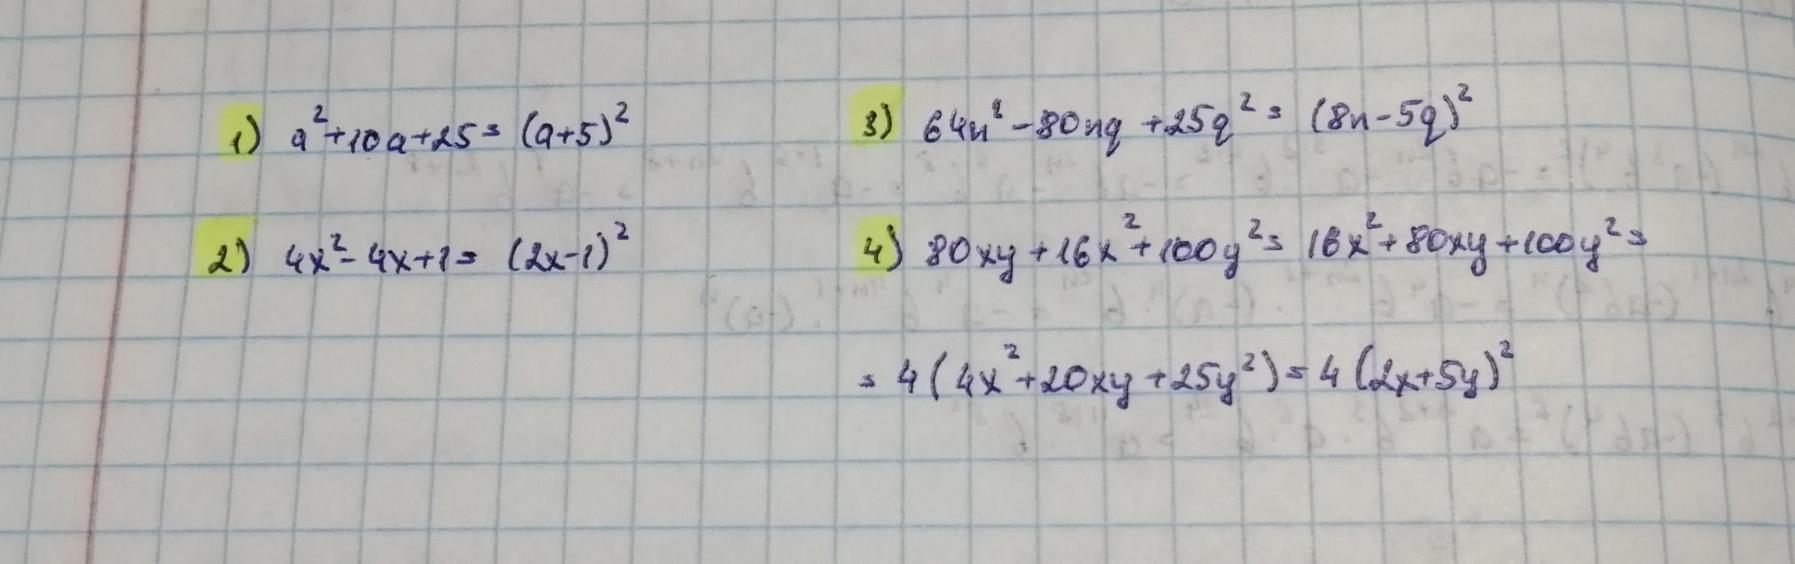 1) a²+10a+25=(a+5)²
2) 4x²-4x+1=(2x-1)²
3) 64n²-80nq+25q²=(8n-5q)²
4) 80xy+16x²+100y²=16x²+80xy+100y²=
=4(4x²+20xy+25y²)=4(2x+5y)²